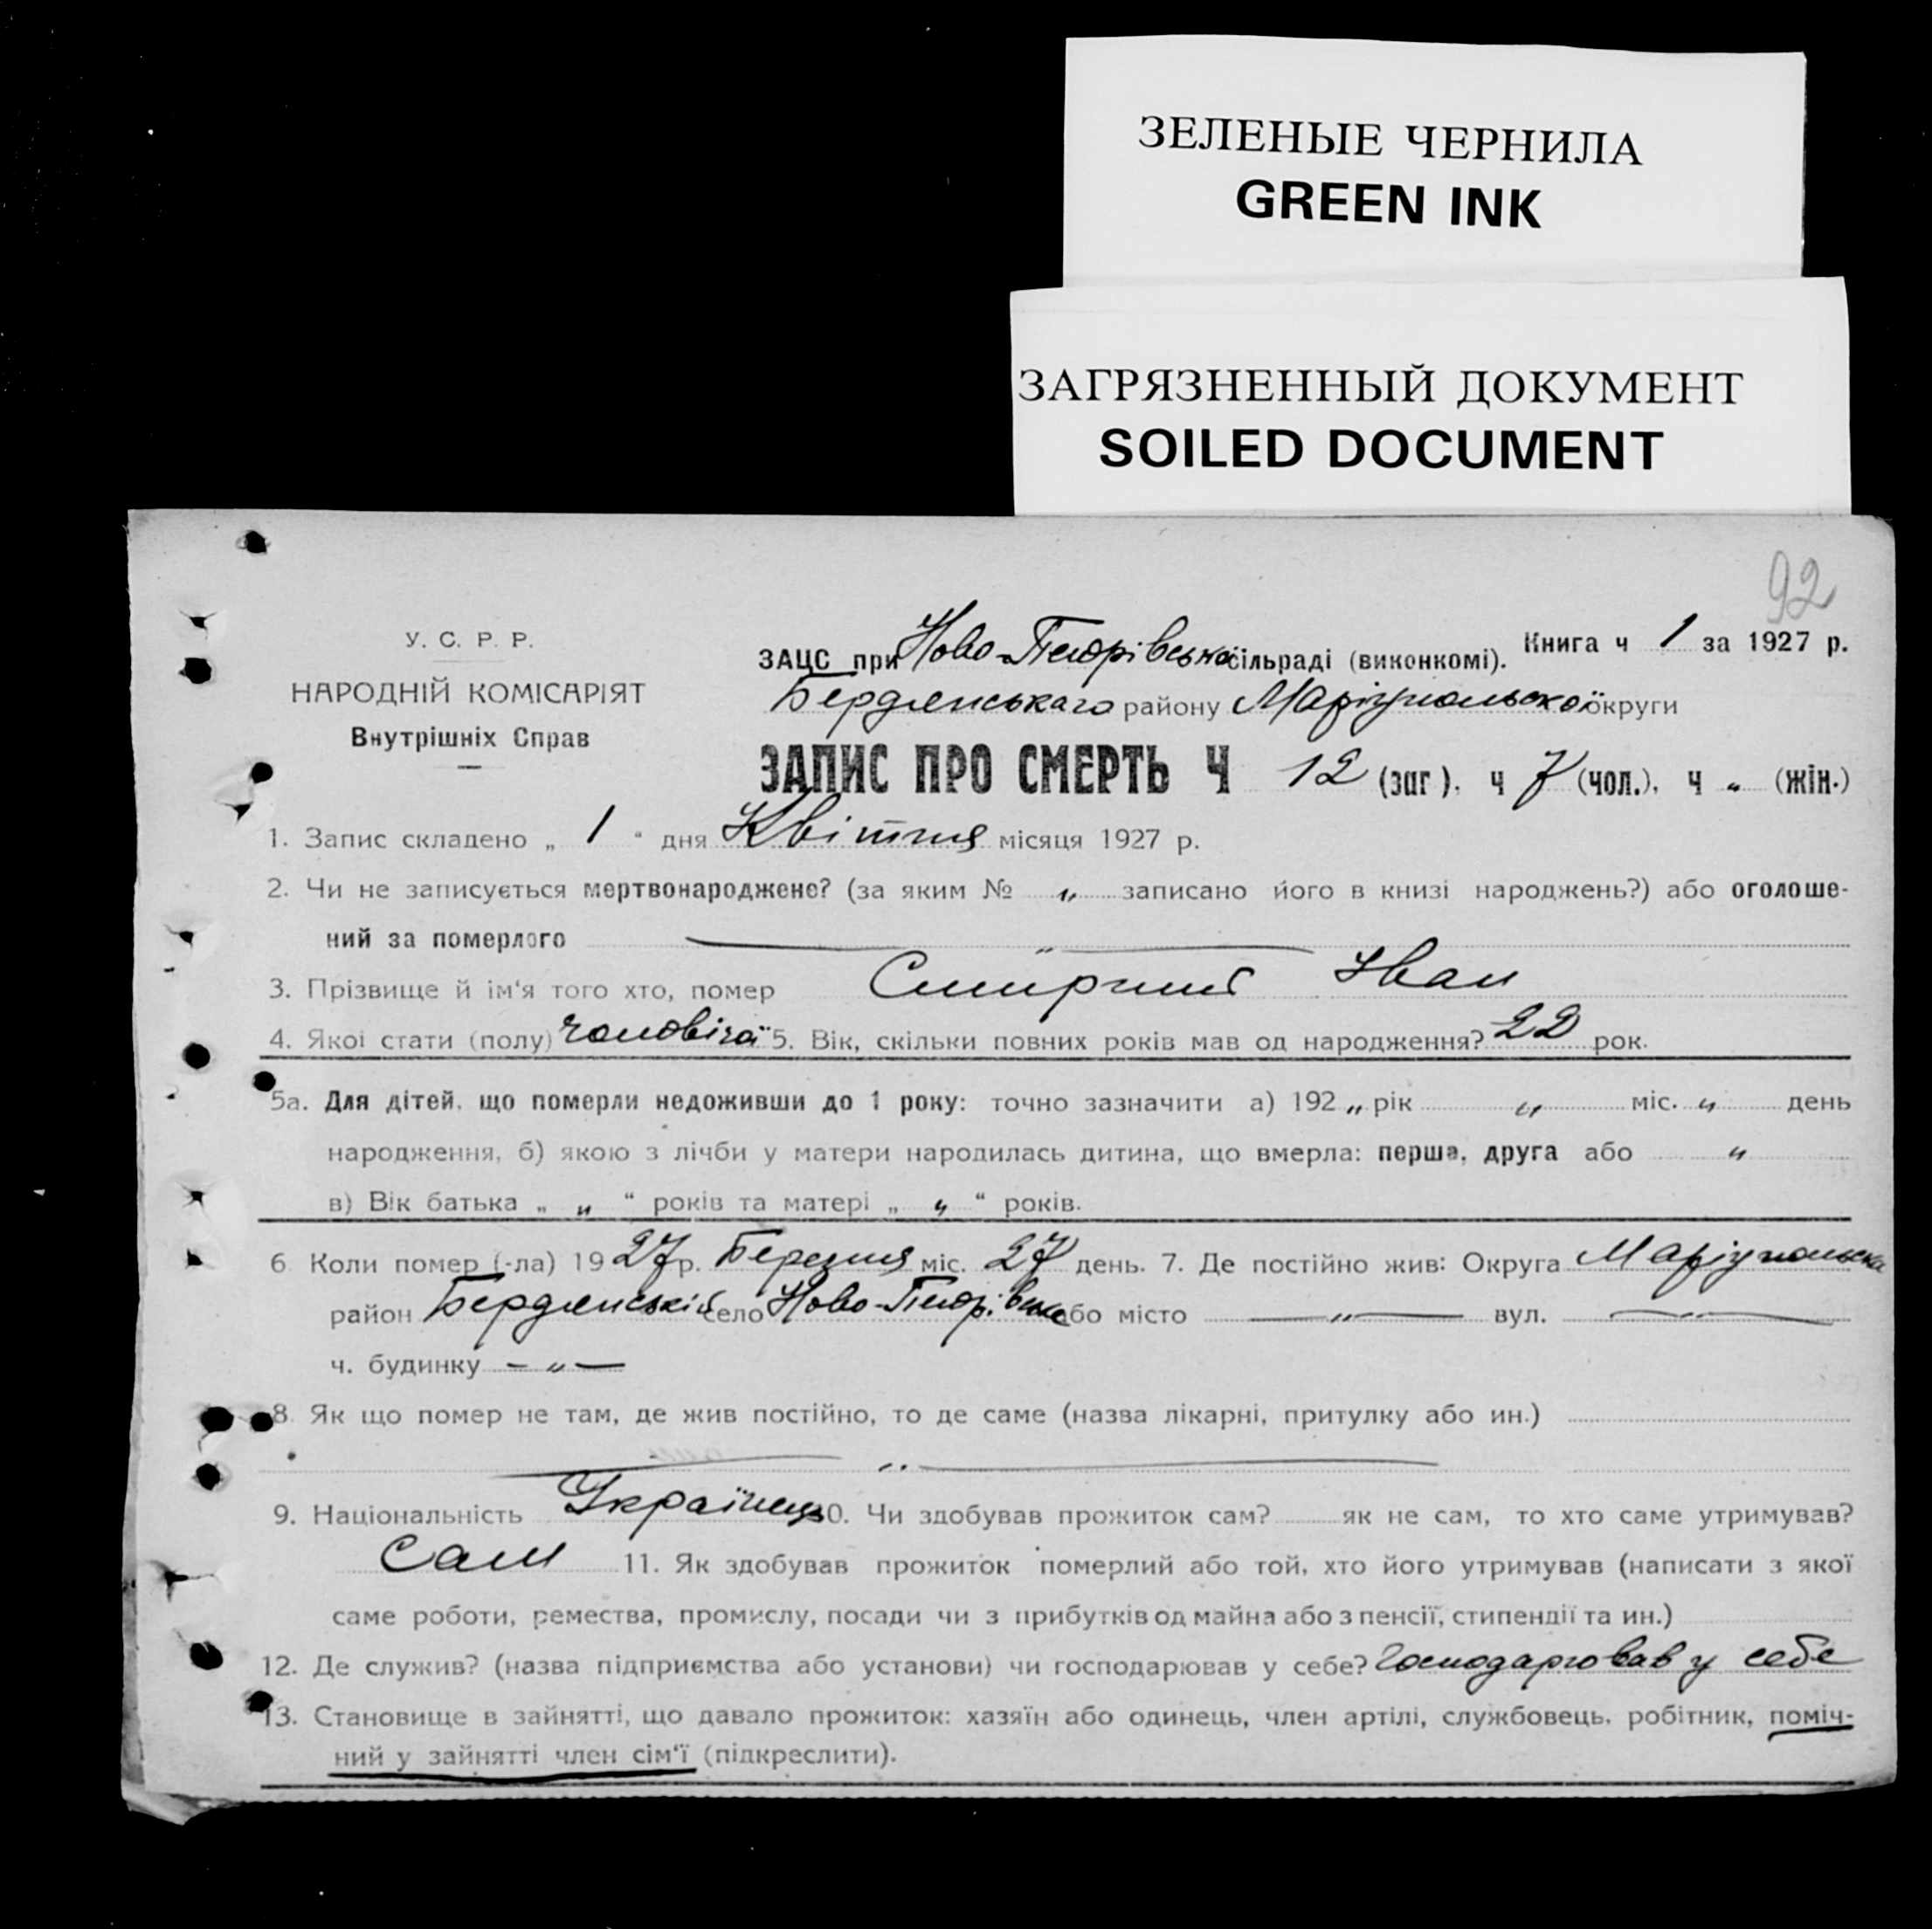 ЗЕЛЕНЫЕ ЧЕРНИЛА
GREEN INK
ЗАГРЯЗНЕННЫЙ ДОКУМЕНТ
SOILED DOCUMENT
92
У. С. Р. Р.
НАРОДНІЙ КОМІСАРІЯТ
Внутрішніх Справ
ЗАЦС при Ново-Петрівської сільраді (виконкомі). Книга ч 1 за 1927 р.
Бердянськаго району Маріупольської округи
ЗАПИС ПРО СМЕРТЬ Ч 12 (заг). ч 7 (чол.), ч „ (жін.)
1. Запис складено „ 1 “ дня Квітня місяця 1927 р.
2. Чи не записується мертвонароджене? (за яким № „ записано його в книзі народжень?) або оголоше-
ний за померлого — „ —
3. Прізвище й ім'я того хто, помер Іван
4. Якої стати (полу) чоловічої 5. Вік, скільки повних років мав од народження? 22 рок.
5а. Для дітей, що померли недоживши до 1 року: точно зазначити а) 192 „ рік „ міс. „ день
народження, б) якою з лічби у матери народилась дитина, що вмерла: перша, друга або „
в) Вік батька „ „ “ років та матері „ „ “ років.
6 Коли помер (-ла) 1927 р. Березня міс. 27 день. 7. Де постійно жив: Округа Маріупольска
район Бердянській село Ново-Петрівське або місто — „ — вул. — „ —
ч. будинку — „ —
8. Як що помер не там, де жив постійно, то де саме (назва лікарні, притулку або ин.)
— „ —
9. Національність Українець 10. Чи здобував прожиток сам? як не сам, то хто саме утримував?
Сам 11. Як здобував прожиток померлий або той, хто його утримував (написати з якої
саме роботи, ремества, промислу, посади чи з прибутків од майна або з пенсії, стипендії та ин.)
12. Де служив? (назва підприємства або установи) чи господарював у себе? Господарював у себе
13. Становище в зайнятті, що давало прожиток: хазяїн або одинець, член артілі, службовець, робітник, поміч-
ний у зайнятті член сім'ї (підкреслити).